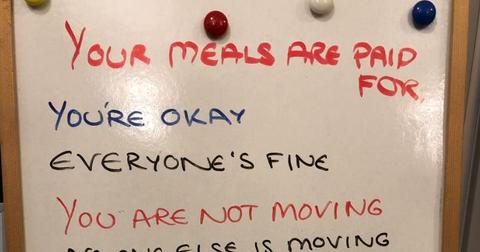 YOUR MEALS ARE PAID
FOR.
YOU'RE OKAY
EVERYONE'S FINE
YOU ARE NOT MOVING
ELSE IS MOVING